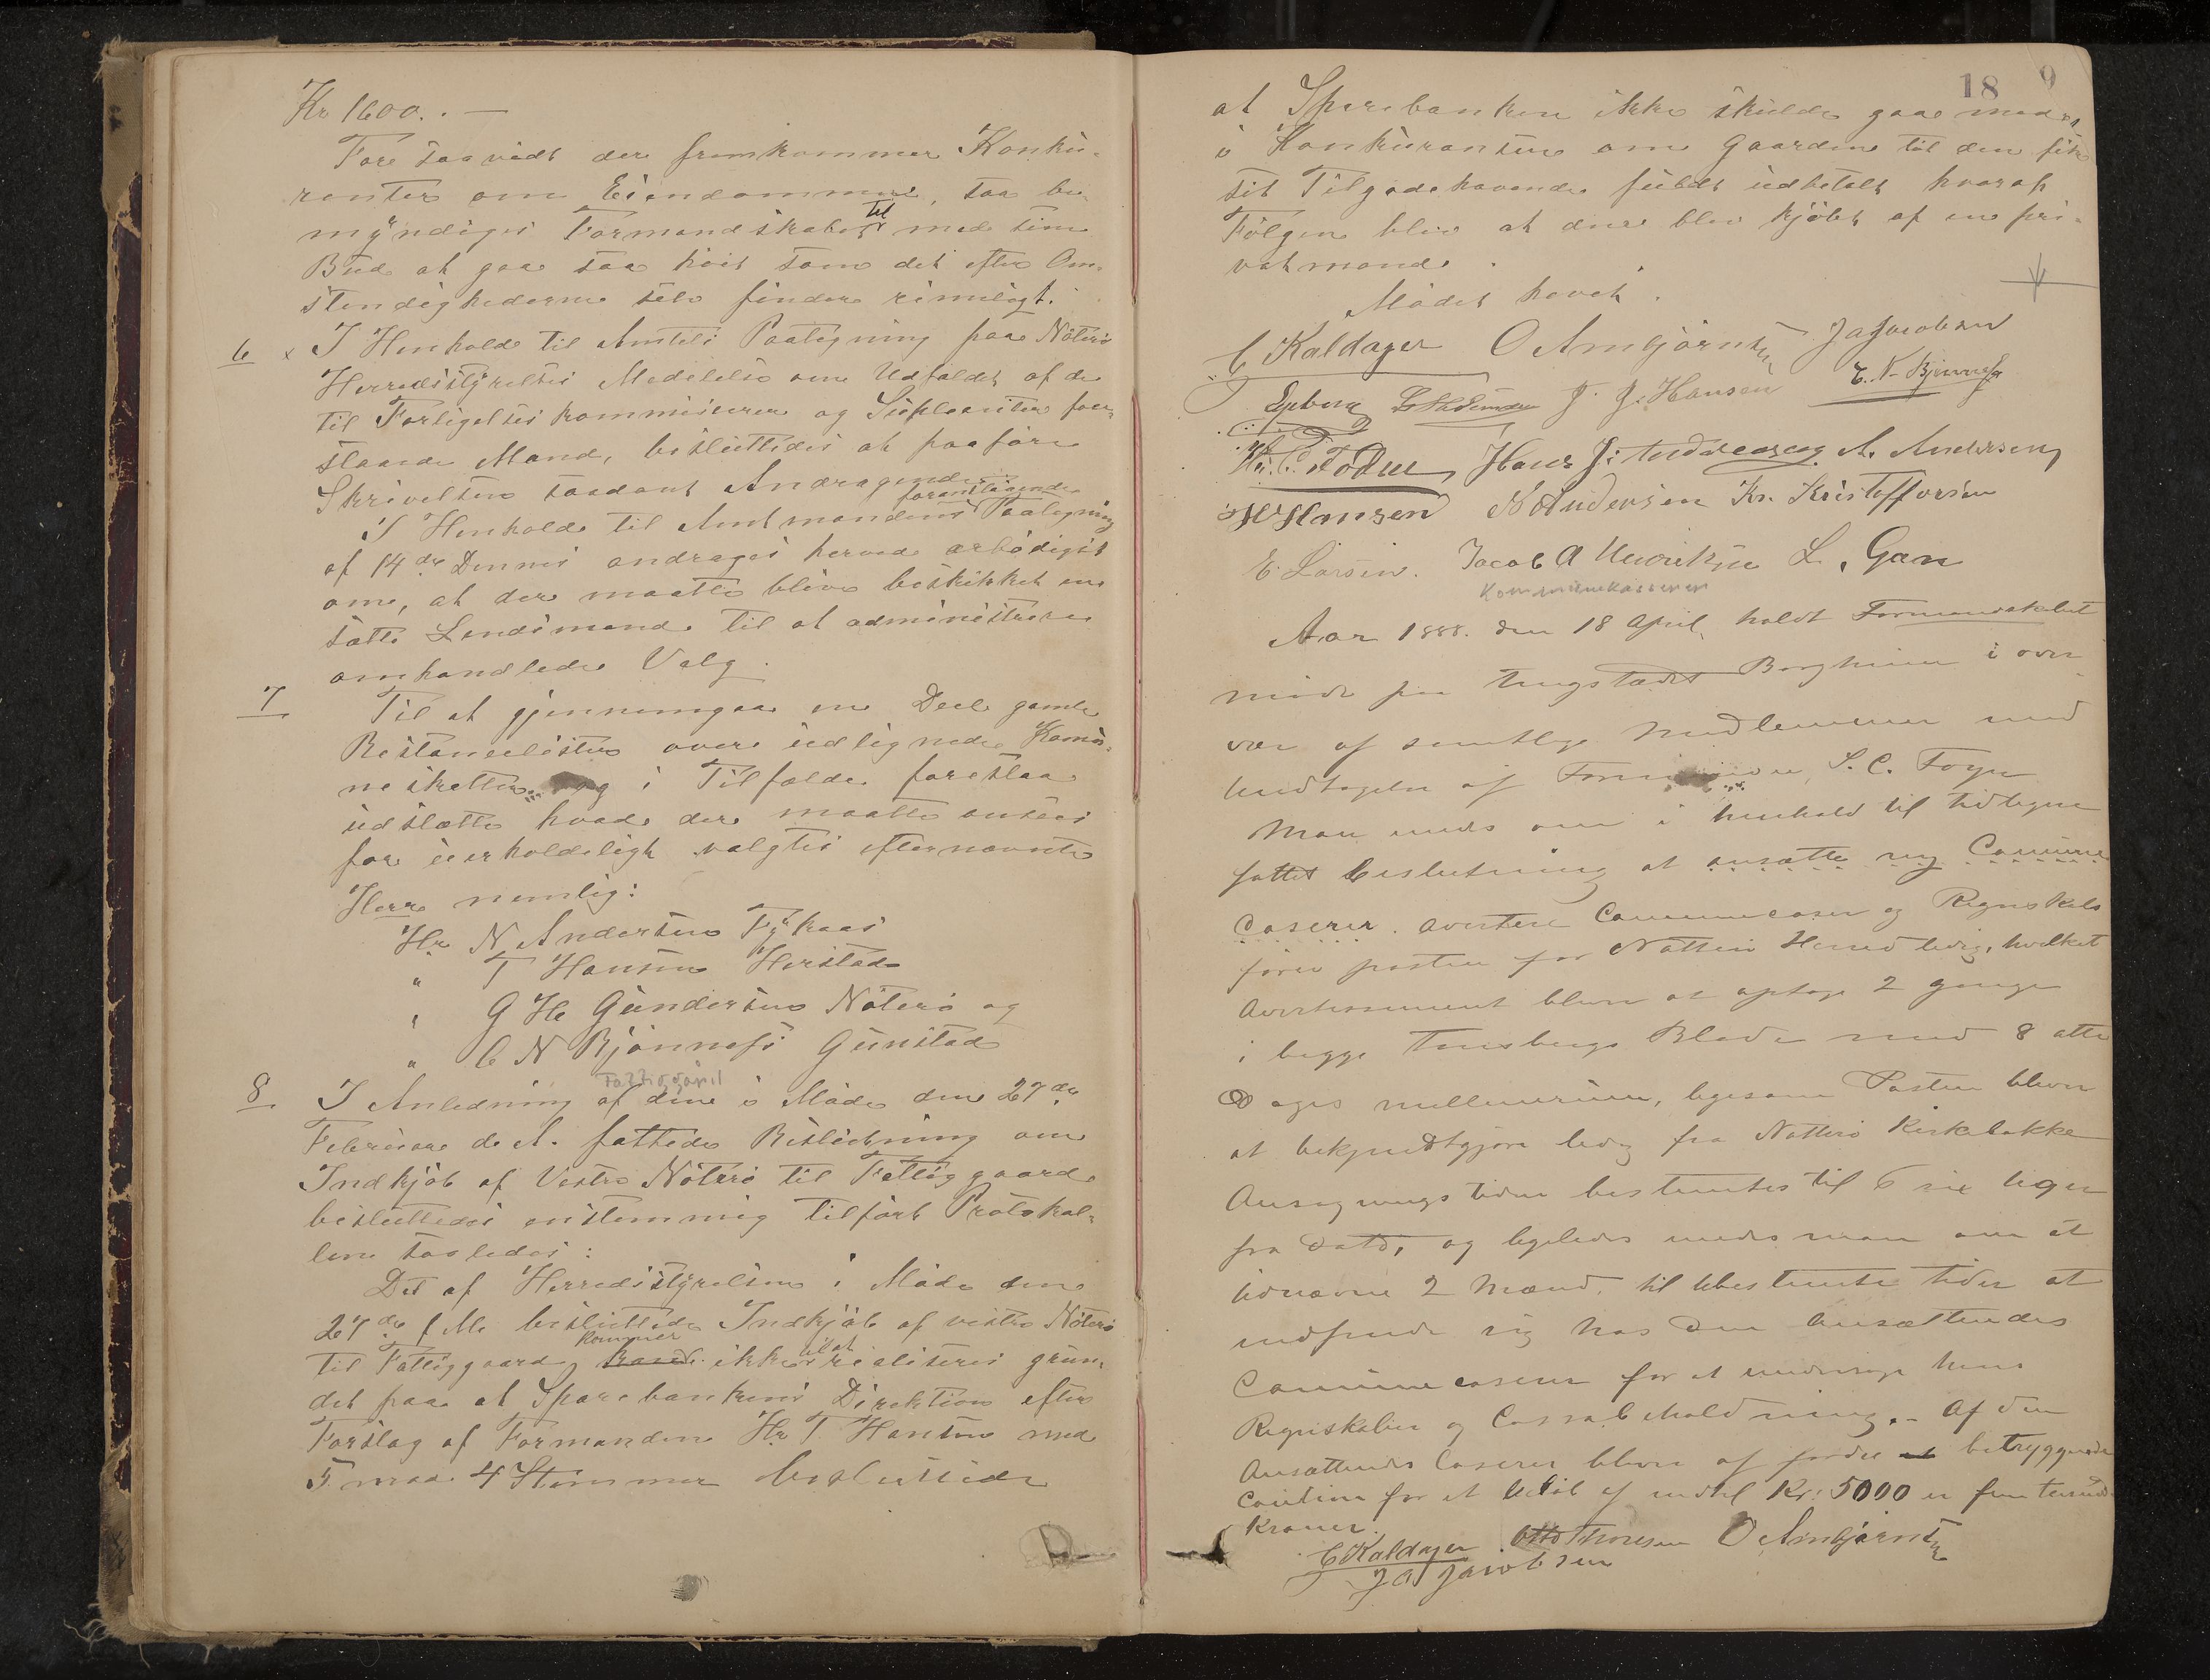 Kr 1600. . —
Fore saavidt der fremkommer Konku-
renter om Eiendommen, saa be-
myndiges Formandskabet til med sine
Bud at gaa saa høit som det efter Om-
stendighederne selv finder rimeligt.
6 x I Henhold til Amtets Paategning paa Nøterø
Herredsstyrelses Meddelelse om Udfaldet af de
til Forligelseskommisærer og Suppleanter fore-
slaaede Mænd, besluttedes at paaføre
Skrivelsen saadant Andragende:
I Henhold til Amtmandens foranstaaende Paategning
af 14de Dennes andrages herved ærbødigst
om, at der maatte blive beskikket en
satte Lendsmand til at administrere
omhandlede Valg.
7 Til at gjennemgaa en Deel gamle
Restancelister over udlignede Komu-
neskatter og i Tilfælde foreslaa
udslætte hvad der maatte ansees
for uerholdeligt valgtes efternævnte
Herre nemlig:
Hr N Andersen Tykaas
" T Hansen Herstad
" G H Gundersen Nøterø og
" C N Bjønness Gunstad
Fattiggård
8 I Anledning af den i Møde den 27de
Februar d. A. fattede Beslutning om
Indkjøb af Vestre Nøterø til Fattiggaard
besluttedes enstemmig tilført Protokol-
len saaledes:
Det af Herredsstyrelsen i Møde den
27de f M. besluttede Indkjøb af vestre Nøterø
til Fattiggaard, kommer ikke til at realiseres grun-
det paa at Sparebankens Direktion efter
Forslag af Formanden Hr T Hansen med
5 maa 4 Stemmer besluttede
18 9
at Sparebanken ikke skulde gaa med
i Konkuransen om Gaarden til den fik
sit Tilgodehavende fuldt udbetalt hvoraf
Følgen blev at den blev kjøbt af en pri-
vatmand.
Mødet hævet.
C Kaldager O Ambjørnsen JAJacobsen
Egeberg J. J. Hansen C. N. Bjønness
H. C. Fodne Hans J: Andreasen A. Andersen
H Hansen N Andersen Kr. Kristoffersen
E. Larsen. Jacob A Henriksen L. Gan
Kommunekasserer
Aar 1888. den 18 April, holdt Formandskabet
møde paa tingstædet Borgheim i over-
vær af samtlige medlemmer med
undtagelse af Formanden, S. C. Foyn
Man enedes om i henhold til tidligere
fattet beslutning at ansætte ny Commune
Caserer. avertere Communecaser og Regnskabs
fører posten for Nøtterø Herred ledig, hvilket
Avertissement bliver at optage 2 gange
i begge Tønsbergs Blade med 8 otte
Dages mellemrum, ligesom Posten bliver
at bekjendtgjøre ledig fra Nøtterø Kirkebakke
Ansøgningstiden bestemtes til 6 sex uger
fra Dato, og ligeledes enedes man om at
udnævne 2 Mænd, til ubestemte tider at
indfinde sig hos den Ansættendes
Communecaserer for at undersøge hans
Regnskaber og Cassabeholdning. – Af den
Ansættende Caserer bliver at fordre betryggende
Caution for et Beløb af indtil Kr: 5000 er fem tusind
Kroner.
C Kaldager Otto Thoresen O Ambjørnsen
J A Jacobsen